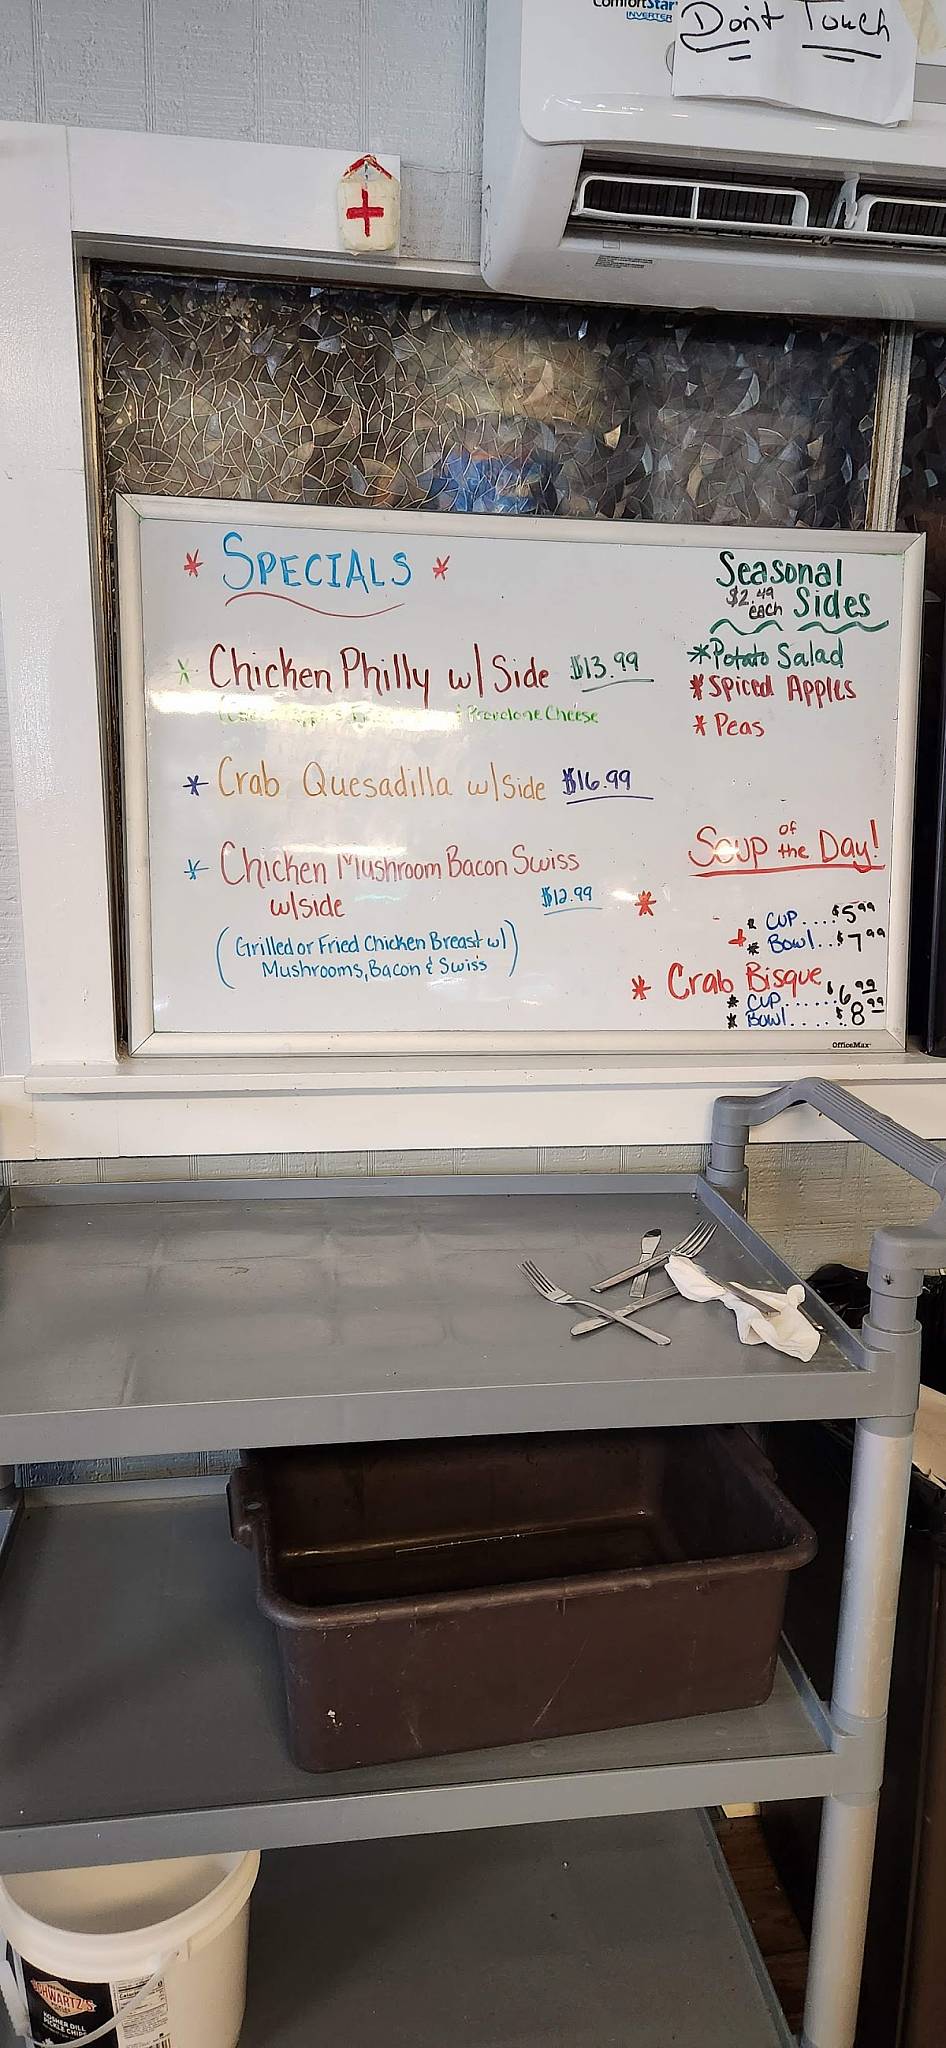 ComfortStar
INVERTER
Don't Touch
* SPECIALS *
* Chicken Philly w/ Side $13.99
Provolone Cheese
* Crab Quesadilla w/Side $16.99
* Chicken Mushroom Bacon Swiss
w/side $12.99
(Grilled or Fried Chicken Breast w/
Mushrooms, Bacon & Swiss)
Seasonal
$2.49 each Sides
* Potato Salad
* Spiced Apples
* Peas
Soup of the Day!
*
* CUP....$5.99
* Bowl..$7.99
* Crab Bisque
* CUP......$6.99
* Bowl.....$8.99
OfficeMax
SCHWARTZ'S
KOSHER DILL
PICKLE CHIPS